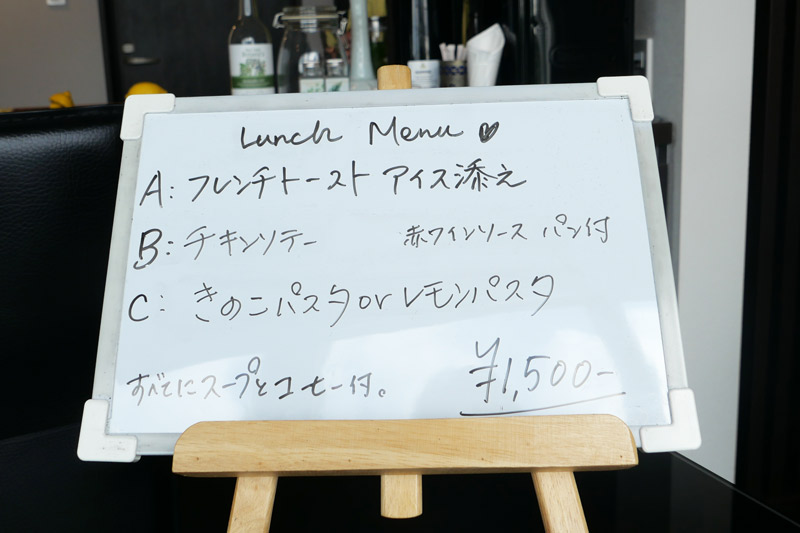 Lunch Menu ♥
A: フレンチトースト アイス添え
B: チキンソテー 赤ワインソース パン付
C: きのこパスタ or レモンパスタ
すべてにスープとコーヒー付。 ¥1,500-